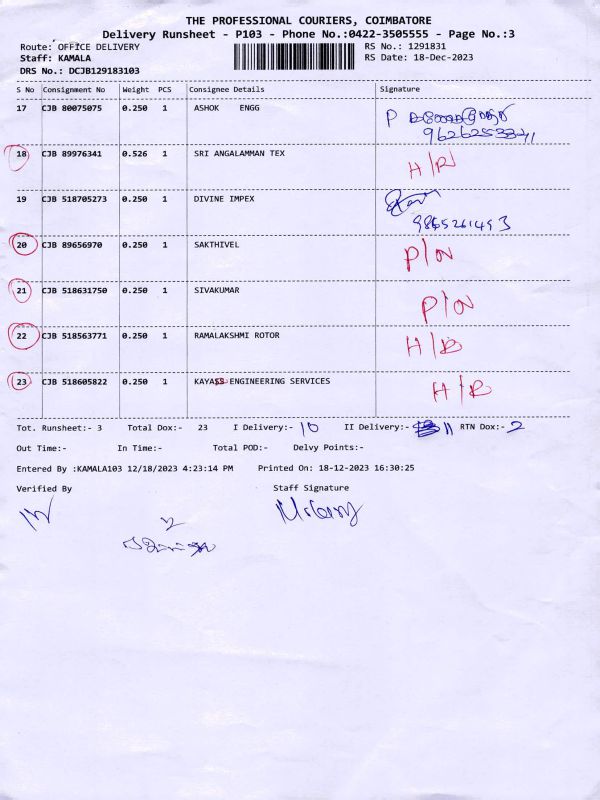 THE PROFESSIONAL COURIERS, COIMBATORE
Delivery Runsheet - P103 - Phone No.:0422-3505555 - Page No.:3
Route: OFFICE DELIVERY RS No.: 1291831
Staff: KAMALA RS Date: 18-Dec-2023
DRS No.: DCJB129183103
S No Consignment No Weight PCS Consignee Details Signature
17 CJB 80075075 0.250 1 ASHOK ENGG P
18 CJB 89976341 0.526 1 SRI ANGALAMMAN TEX H/R
19 CJB 518705273 0.250 1 DIVINE IMPEX
9865261493
20 CJB 89656970 0.250 1 SAKTHIVEL P/N
21 CJB 518631750 0.250 1 SIVAKUMAR P/N
22 CJB 518563771 0.250 1 RAMALAKSHMI ROTOR H/R
23 CJB 518605822 0.250 1 ENGINEERING SERVICES H/R
Tot. Runsheet:- 3 Total Dox:- 23 I Delivery:- 10 II Delivery:- 11 RTN Dox:- 2
Out Time:- In Time:- Total POD:- Delvy Points:-
Entered By :KAMALA103 12/18/2023 4:23:14 PM Printed On: 18-12-2023 16:30:25
Verified By Staff Signature